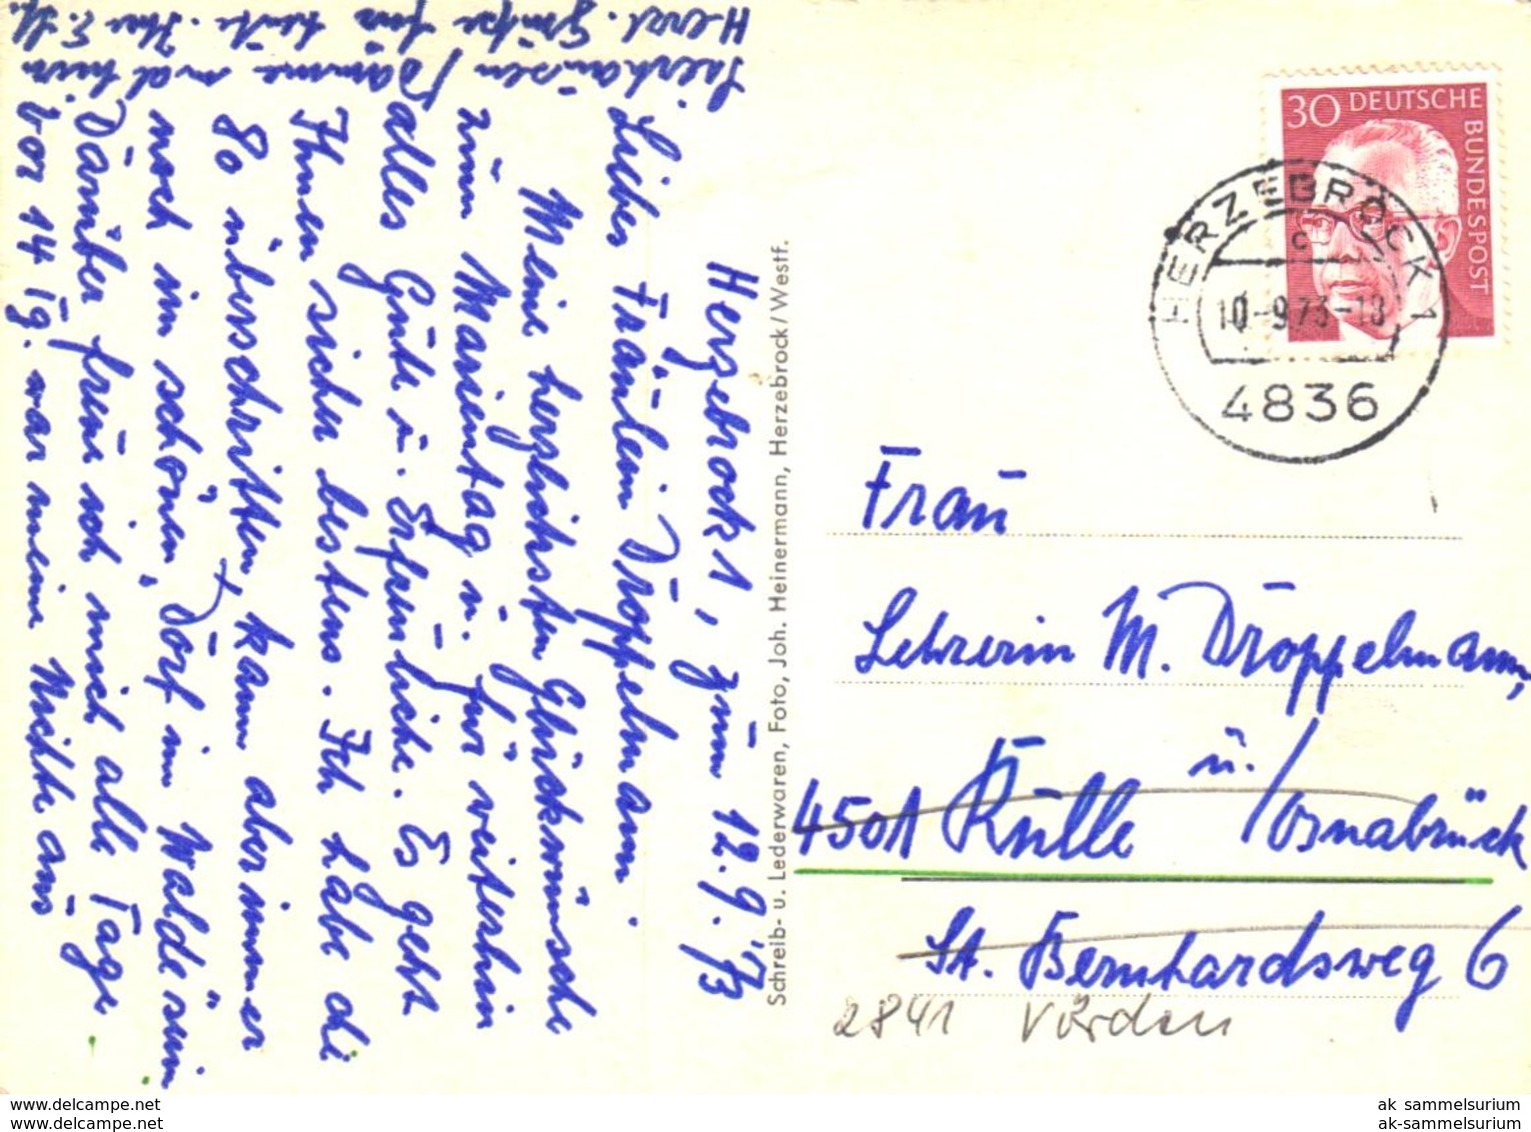 Herzebrock 1, zum 12.9.'73
Liebes Fräulein Droppelmann
Meine herzlichsten Glückwünsche
zum Marientag u. für weiterhin
alles Gute u. Erfreuliche. Es geht
Ihnen sicher bestens. Ich habe die
80 überschritten, kann aber immer
noch im schönen Dorf im Walde sein
Darüber freue ich mich alle Tage.
Vor 14 Tg. war meine Nichte aus
/ Damme mal hier
Herzl. Grüße für heute. Ihre
Schreib- u. Lederwaren, Foto, Joh. Heinermann, Herzebrock/Westf.
30 DEUTSCHE
BUNDESPOST
HERZEBROCK 1
c
10.-9.73-18
4836
Frau
Lehrerin M. Droppelmann,
4501 Rulle ü./Osnabrück
St. Bernhardsweg 6
2841 Vörden
www.delcampe.net
www.delcampe.net
ak_sammelsurium
ak-sammelsurium